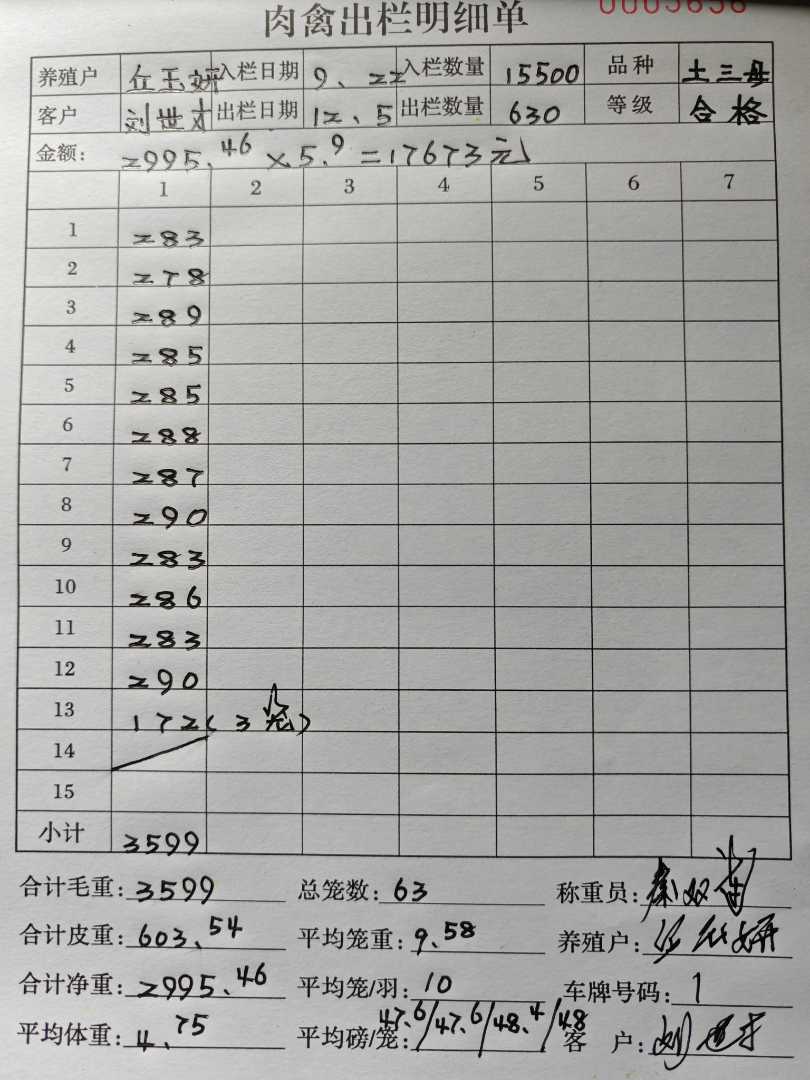 肉禽出栏明细单 0005656
养殖户 丘玉妍 入栏日期 9、22 入栏数量 15500 品种 土三母
客户 刘世才 出栏日期 12、5 出栏数量 630 等级 合格
金额: 2995.46 × 5.9 = 17673元
1 2 3 4 5 6 7
1 283
2 278
3 289
4 285
5 285
6 288
7 287
8 290
9 283
10 286
11 283
12 290
13 172(3笼)
14
15
小计 3599
合计毛重: 3599 总笼数: 63 称重员:
合计皮重: 603.54 平均笼重: 9.58 养殖户:
合计净重: 2995.46 平均笼/羽: 10 车牌号码: 1
平均体重: 4.75 平均磅/笼: 47.6/47.6/48.4/48 客 户: 刘世才